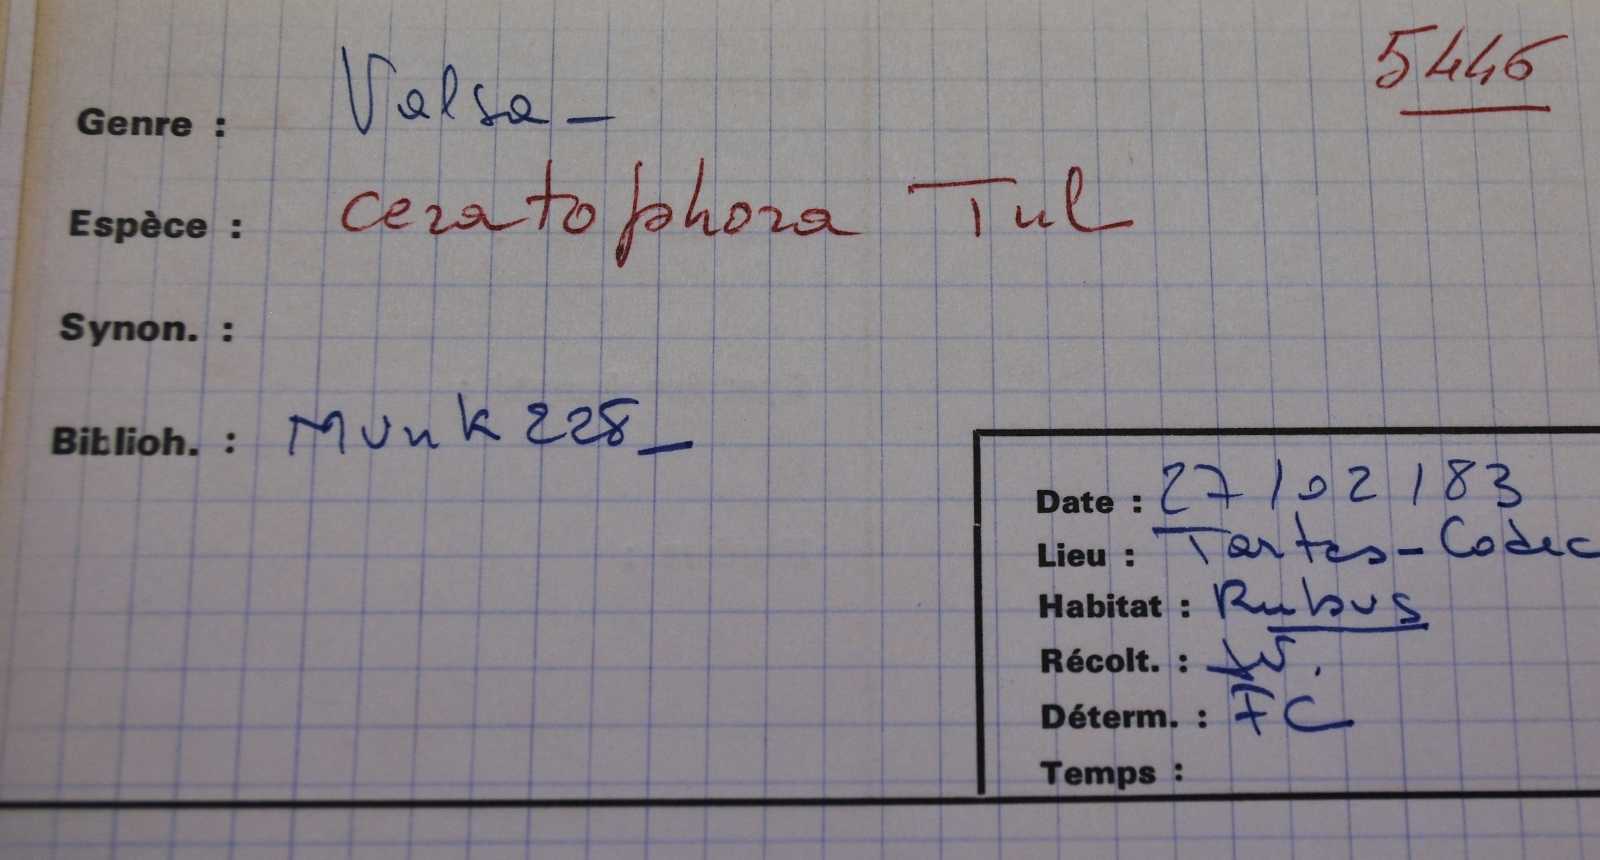 5446
Genre : Valsa -
Espèce : ceratophora Tul
Synon. :
Biblioh. : Munk 228 -
Date : 27/02/83
Lieu : Tartas - Codec
Habitat : Rubus
Récolt. :
Déterm. : FC
Temps :